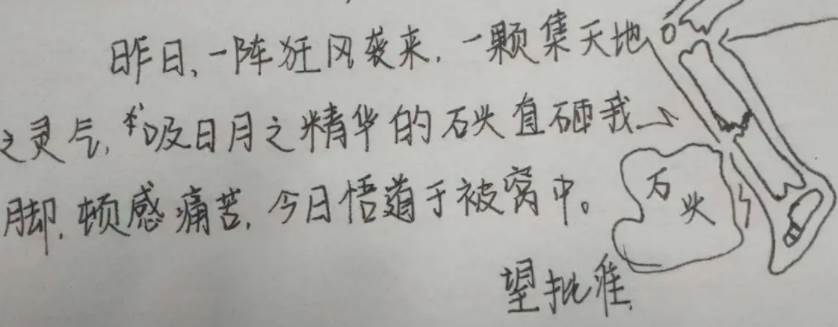 昨日,一阵狂风袭来,一颗集天地
之灵气,吸日月之精华的石头直砸我
脚,顿感痛苦,今日悟道于被窝中。
石头
望批准